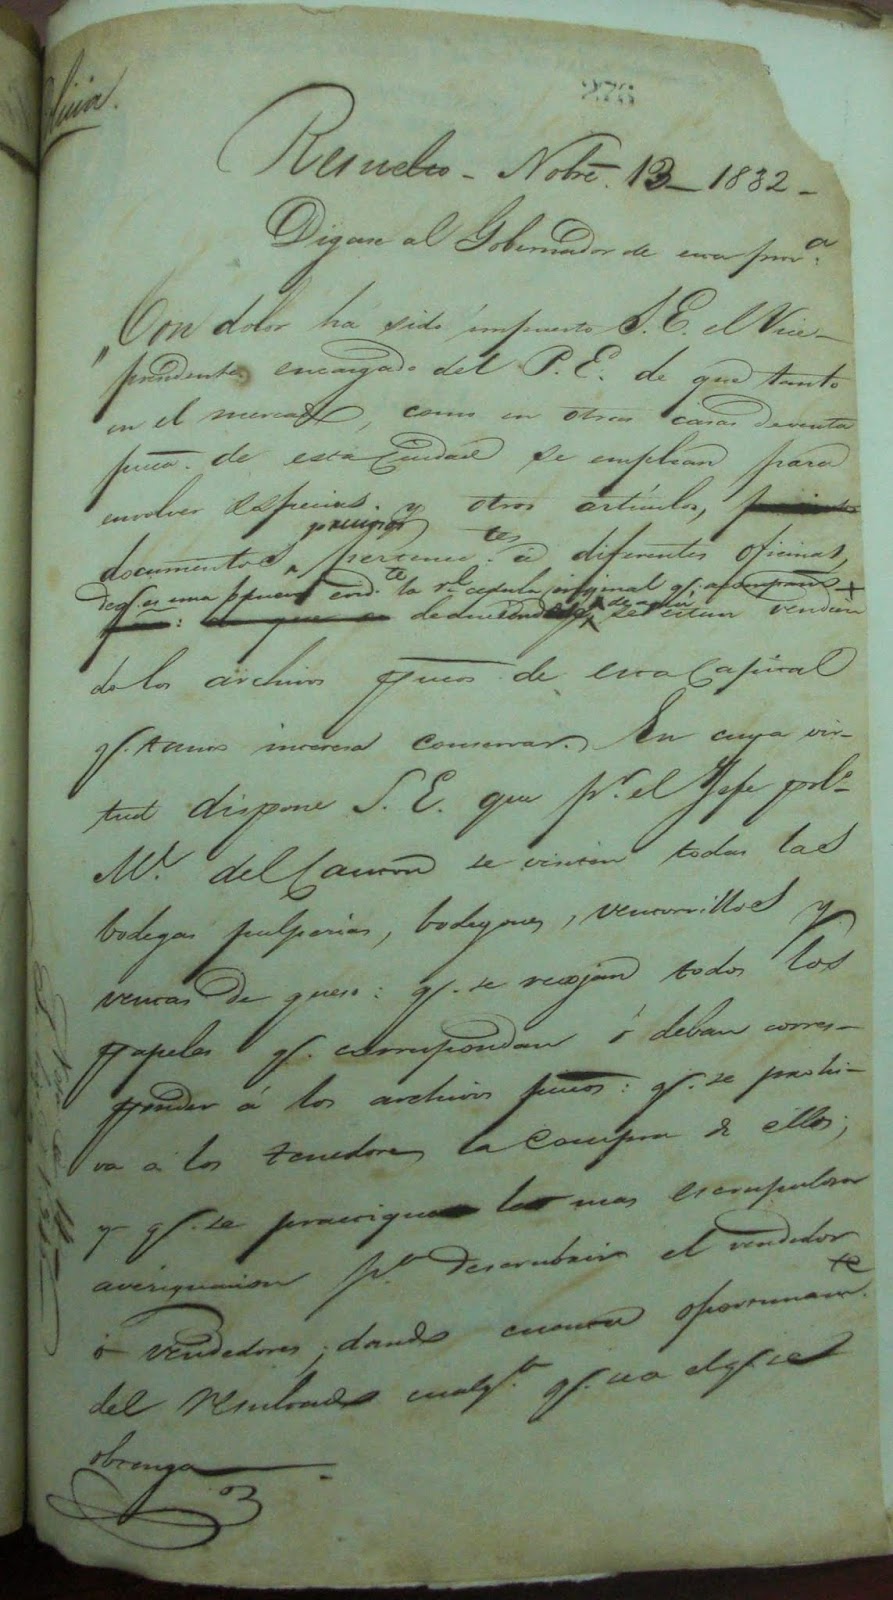 276
Resuelto - Nobre. 13 - 1832 -
Digase al Gobernador de esta prova.
"Con dolor ha sido impuesto S.E. el Vice-
presidente encargado del P.E. de que tanto
en el mercado, como en otras casas de venta
pucas. de esta Ciudad se emplean para
envolver especias y otros artículos,
documentos preciosos pertenectes. a diferentes oficinas,
de q. es una prueva la rl. cedula original q. acompaño +
deduciendose de aquí q. se estan vendien
do los archivos pucos. de esta Capital
q. tanto interesa conservar. En cuya vir-
tud dispone S.E. que pr. el Jefe polco.
Ml. del Canton se visiten todas las
bodegas pulperias, bodegones, ventorrillos y
ventas de queso: q. se recojan todos los
papeles q. correspondan ó deban corres-
ponder á los archivos pucos: q. se prohi-
va a los tenedores la compra de ellos;
y q. se practique la mas escrupulosa
averiguacion pa. descubrir el vendedor
ó vendedores; dando cuenta oportunamte.
del resultado cualqa. q. sea el q. se
obtenga